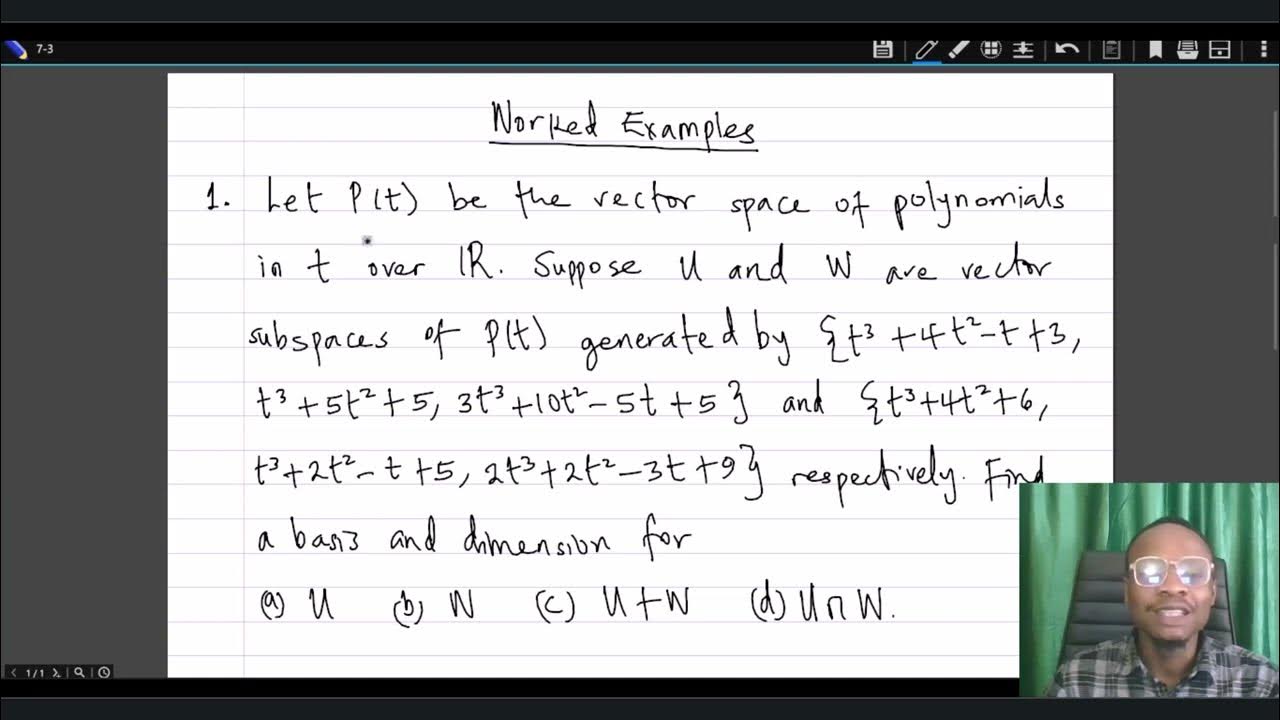 7-3
Worked Examples
1. Let P(t) be the vector space of polynomials
in t over ℝ. Suppose U and W are vector
subspaces of P(t) generated by {t³ + 4t² - t + 3,
t³ + 5t² + 5, 3t³ + 10t² - 5t + 5} and {t³ + 4t² + 6,
t³ + 2t² - t + 5, 2t³ + 2t² - 3t + 9} respectively. Find
a basis and dimension for
(a) U (b) W (c) U + W (d) U ∩ W.
1/1